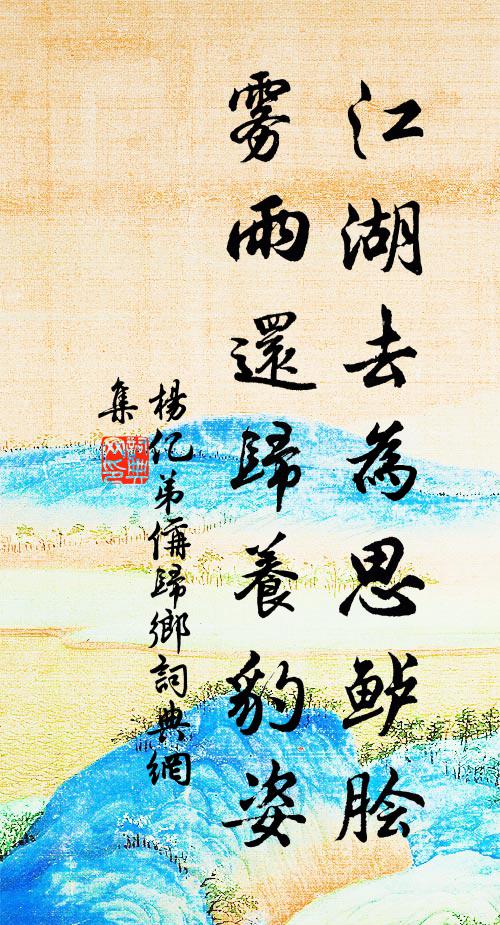 江湖去為思鲈脍
雾雨還歸養豹姿
楊亿弟備歸鄉詞典網
集